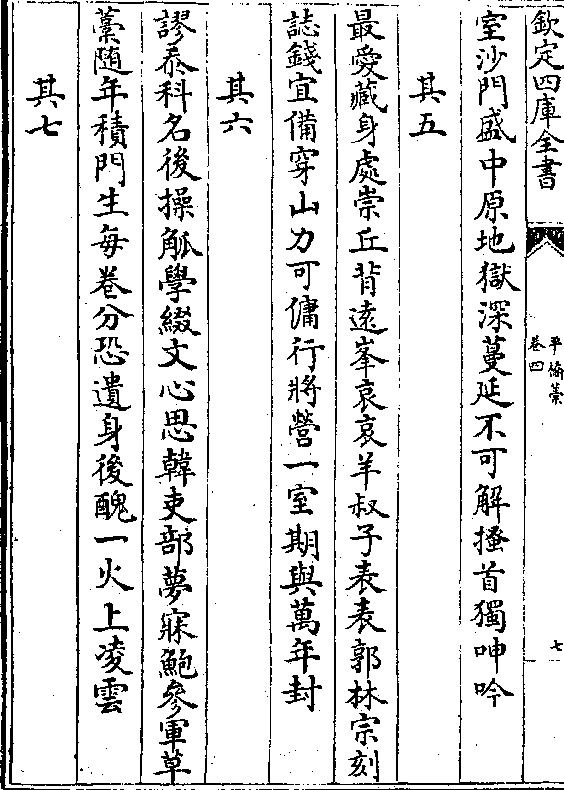 欽定四庫全書
平齋集
卷四
七
室沙門盛中原地獄深蔓延不可解搔首獨呻吟
其五
最愛藏身處崇丘背遠峯哀哀羊叔子表表郭林宗刻
誌錢宜備穿山力可傭行將營一室期與萬年封
其六
謬忝科名後操觚學綴文心思韓吏部夢寐鮑參軍草
藁随年積門生每卷分恐遺身後醜一火上凌雲
其七